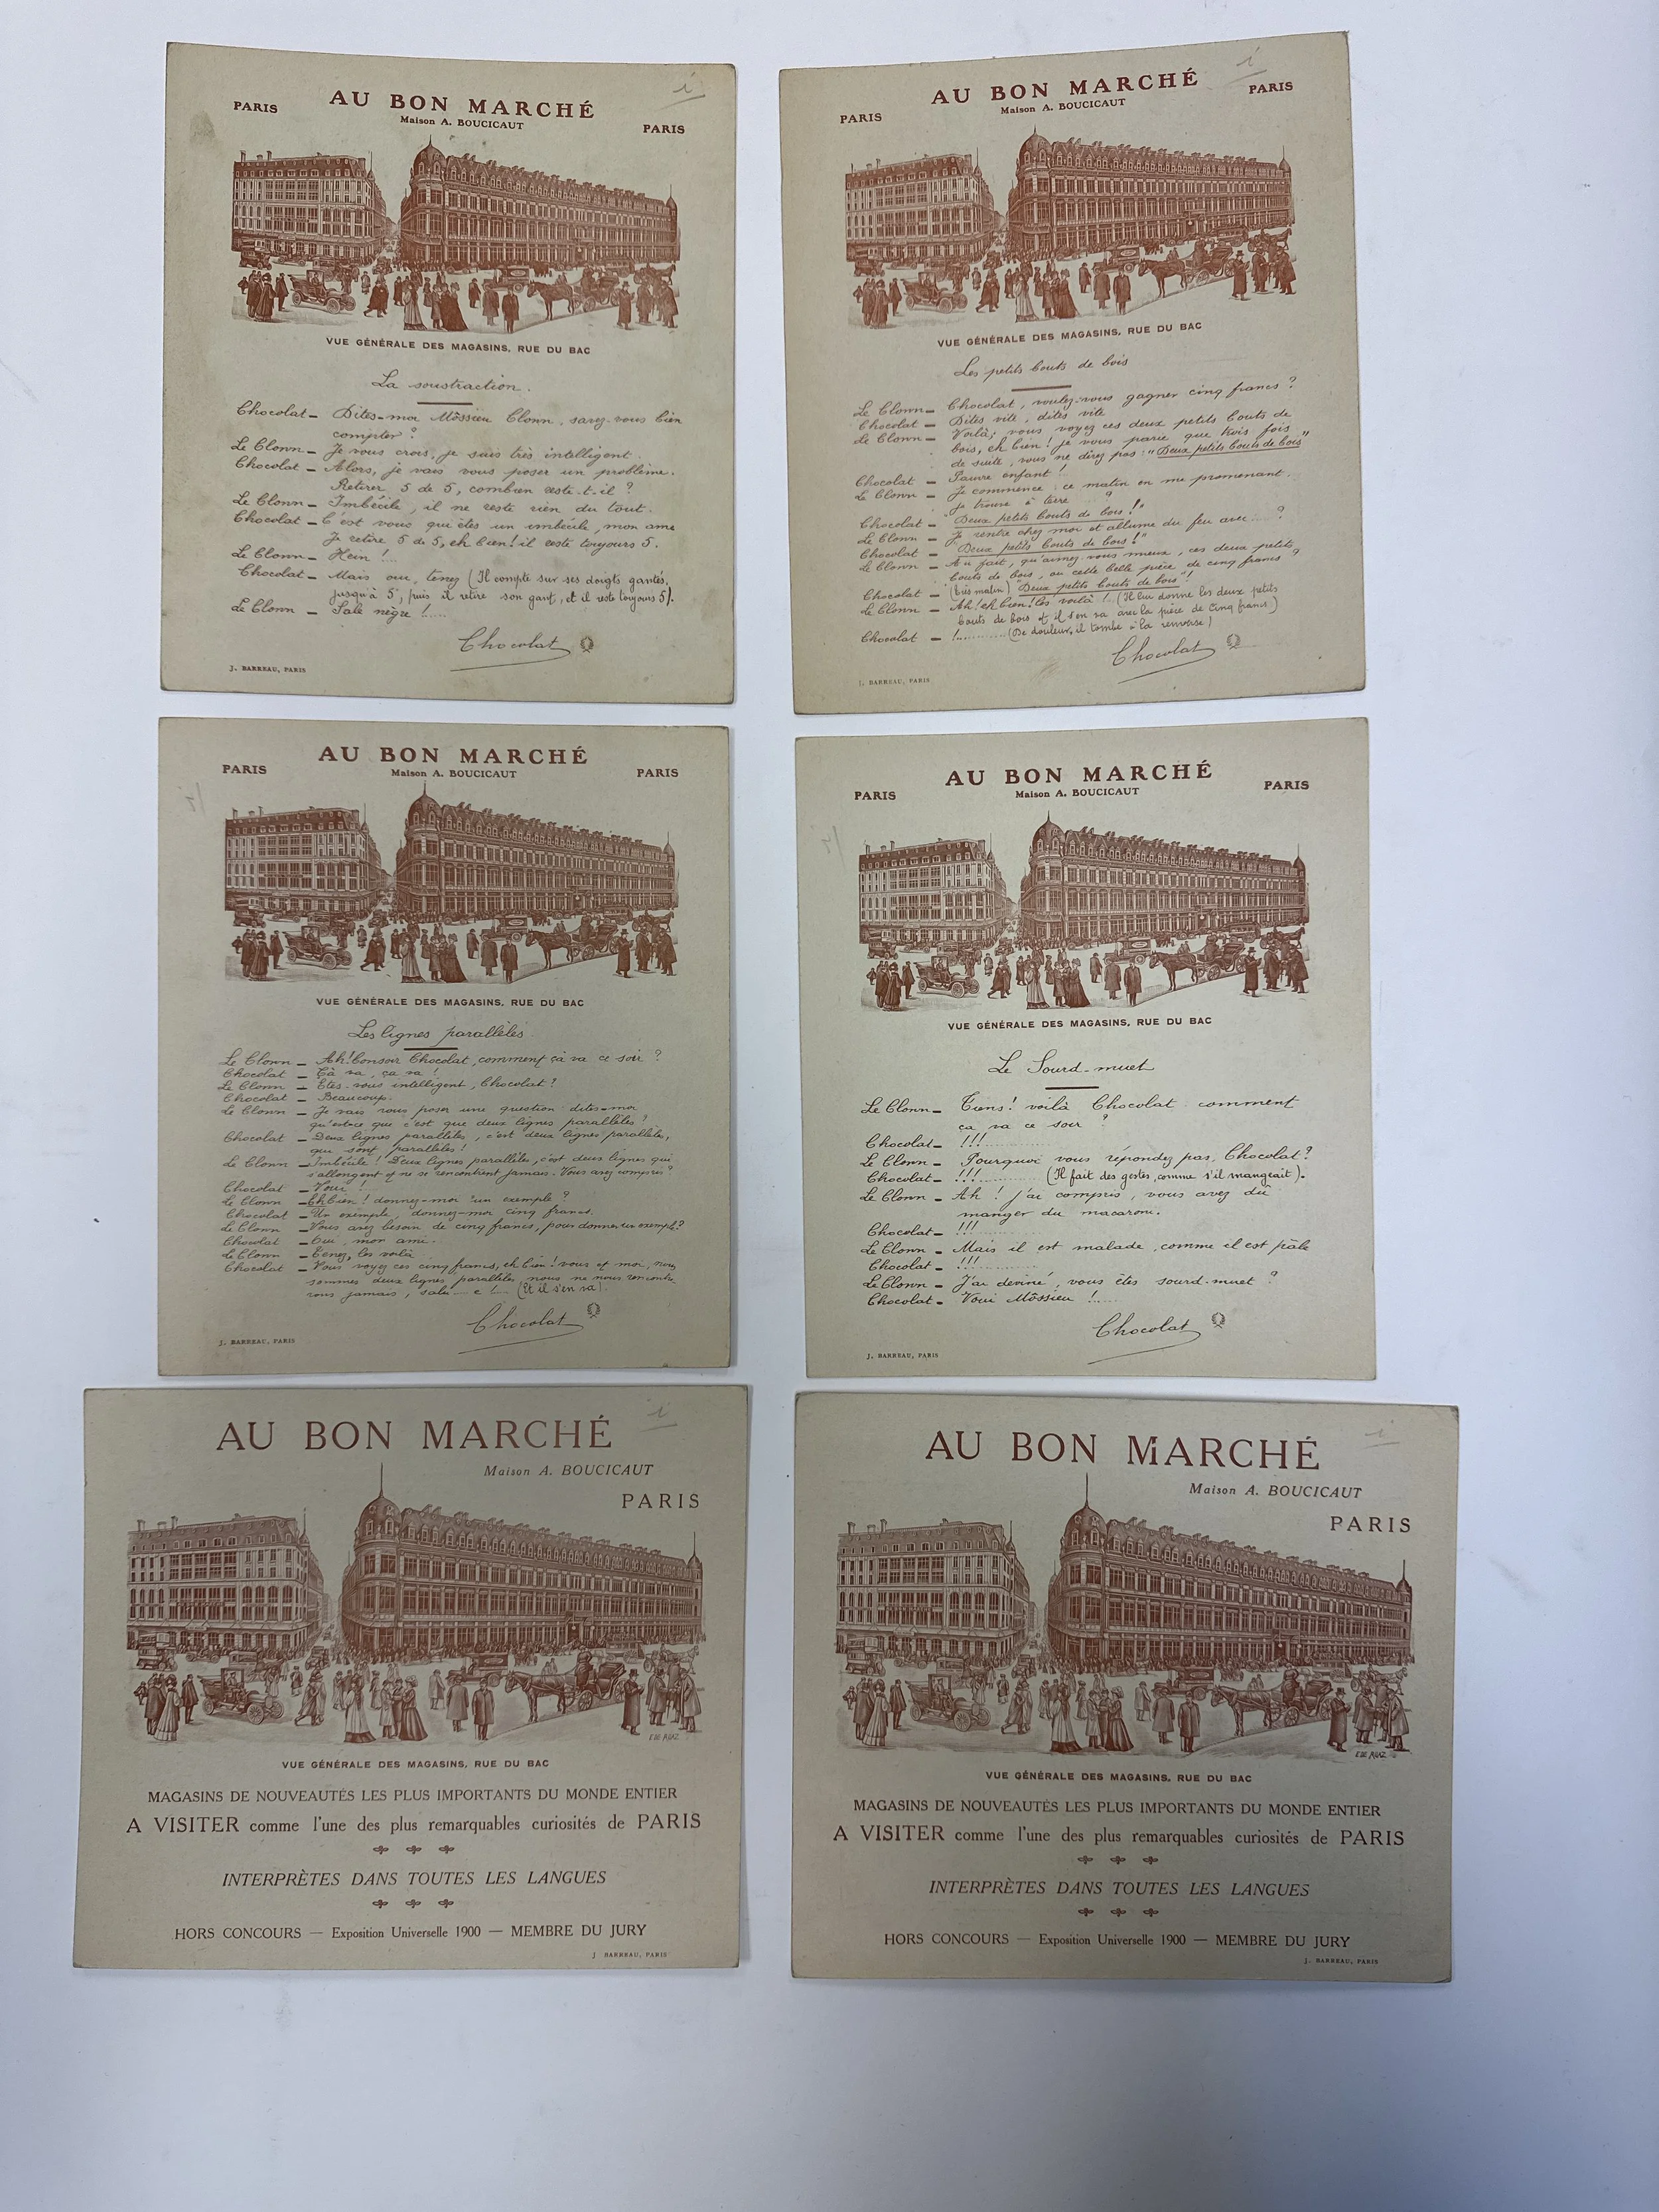 AU BON MARCHÉ
Maison A. BOUCICAUT
PARIS
PARIS
VUE GÉNÉRALE DES MAGASINS, RUE DU BAC
La soustraction.
Chocolat _ Dites-moi Môssieu Clonn, savez-vous bien
compter ?
Le Clonn _ Je vous crois, je suis très intelligent.
Chocolat _ Alors, je vais vous poser un problème.
Retirer 5 de 5, combien reste-t-il ?
Le Clonn _ Imbécile, il ne reste rien du tout.
Chocolat _ C'est vous qui êtes un imbécile, mon ami
Je retire 5 de 5, eh bien! il reste toujours 5.
Le Clonn _ Hein !...
Chocolat _ Mais oui, tenez (Il compte sur ses doigts gantés,
jusqu'à 5, puis il retire son gant, et il reste toujours 5).
Le Clonn _ Sale nègre !.....
Chocolat
J. BARREAU, PARIS
AU BON MARCHÉ
Maison A. BOUCICAUT
PARIS
PARIS
VUE GÉNÉRALE DES MAGASINS, RUE DU BAC
Les petits bouts de bois
Le Clonn _ Chocolat, voulez-vous gagner cinq francs ?
Chocolat _ Dites vite, dites vite
Le Clonn _ Voilà; vous voyez ces deux petits bouts de
bois, eh bien! je vous parie que trois fois
de suite, vous ne direz pas: "Deux petits bouts de bois"
Chocolat _ Pauvre enfant !
Le Clonn _ Je commence: ce matin en me promenant.
Je trouve à terre ....?
Chocolat _ "Deux petits bouts de bois!"
Le Clonn _ Je rentre chez moi et allume du feu avec ....?
Chocolat _ "Deux petits bouts de bois!"
Le Clonn _ Au fait, qu'aimez-vous mieux, ces deux petits
bouts de bois, ou cette belle pièce de cinq francs ?
Chocolat _ (très malin) "Deux petits bouts de bois"!
Le Clonn _ Ah! eh bien! les voilà !. (Il lui donne les deux petits
bouts de bois et il s'en va avec la pièce de Cinq francs)
Chocolat _ !.......... (De douleur, il tombe à la renverse)
Chocolat
J. BARREAU, PARIS
AU BON MARCHÉ
Maison A. BOUCICAUT
PARIS
PARIS
VUE GÉNÉRALE DES MAGASINS, RUE DU BAC
Les lignes parallèles.
Le Clonn _ Ah! bonsoir Chocolat, comment çà va ce soir ?
Chocolat _ Çà va, ça va !
Le Clonn _ Etes-vous intelligent, Chocolat ?
Chocolat _ Beaucoup.
Le Clonn _ Je vais vous poser une question: dites-moi
qu'est-ce que c'est que deux lignes parallèles ?
Chocolat _ Deux lignes parallèles, c'est deux lignes parallèles,
qui sont parallèles!
Le Clonn _ Imbécile! Deux lignes parallèles, c'est deux lignes qui
s'allongent et ne se rencontrent jamais. Vous avez compris ?
Chocolat _ Voui !
Le Clonn _ Eh bien! donnez-moi un exemple ?
Chocolat _ Un exemple, donnez-moi cinq francs.
Le Clonn _ Vous avez besoin de cinq francs, pour donner un exemple?
Chocolat _ Oui, mon ami.
Le Clonn _ Tenez, les voilà
Chocolat _ Vous voyez ces cinq francs, eh bien! vous et moi, nous
sommes deux lignes parallèles, nous ne nous rencontre-
rons jamais, salu.... e !... (Et il s'en va)
Chocolat
J. BARREAU, PARIS
AU BON MARCHÉ
Maison A. BOUCICAUT
PARIS
PARIS
VUE GÉNÉRALE DES MAGASINS, RUE DU BAC
Le Sourd-muet
Le Clonn _ Tiens! voilà Chocolat comment
ça va ce soir ?
Chocolat _ !!!..............
Le Clonn _ Pourquoi vous répondez pas, Chocolat?
Chocolat _ !!!............ (Il fait des gestes, comme s'il mangeait).
Le Clonn _ Ah ! j'ai compris, vous avez dû
manger du macaroni.
Chocolat _ !!!..............
Le Clonn _ Mais il est malade, comme il est pâle
Chocolat _ !!!..............
Le Clonn _ J'ai deviné, vous êtes sourd-muet ?
Chocolat _ Voui Môssieu !......
Chocolat
J. BARREAU, PARIS
AU BON MARCHÉ
Maison A. BOUCICAUT
PARIS
VUE GÉNÉRALE DES MAGASINS, RUE DU BAC
MAGASINS DE NOUVEAUTÉS LES PLUS IMPORTANTS DU MONDE ENTIER
A VISITER comme l'une des plus remarquables curiosités de PARIS
INTERPRÈTES DANS TOUTES LES LANGUES
HORS CONCOURS — Exposition Universelle 1900 — MEMBRE DU JURY
J BARREAU, PARIS
AU BON MARCHÉ
Maison A. BOUCICAUT
PARIS
VUE GÉNÉRALE DES MAGASINS, RUE DU BAC
MAGASINS DE NOUVEAUTÉS LES PLUS IMPORTANTS DU MONDE ENTIER
A VISITER comme l'une des plus remarquables curiosités de PARIS
INTERPRÈTES DANS TOUTES LES LANGUES
HORS CONCOURS — Exposition Universelle 1900 — MEMBRE DU JURY
J. BARREAU, PARIS